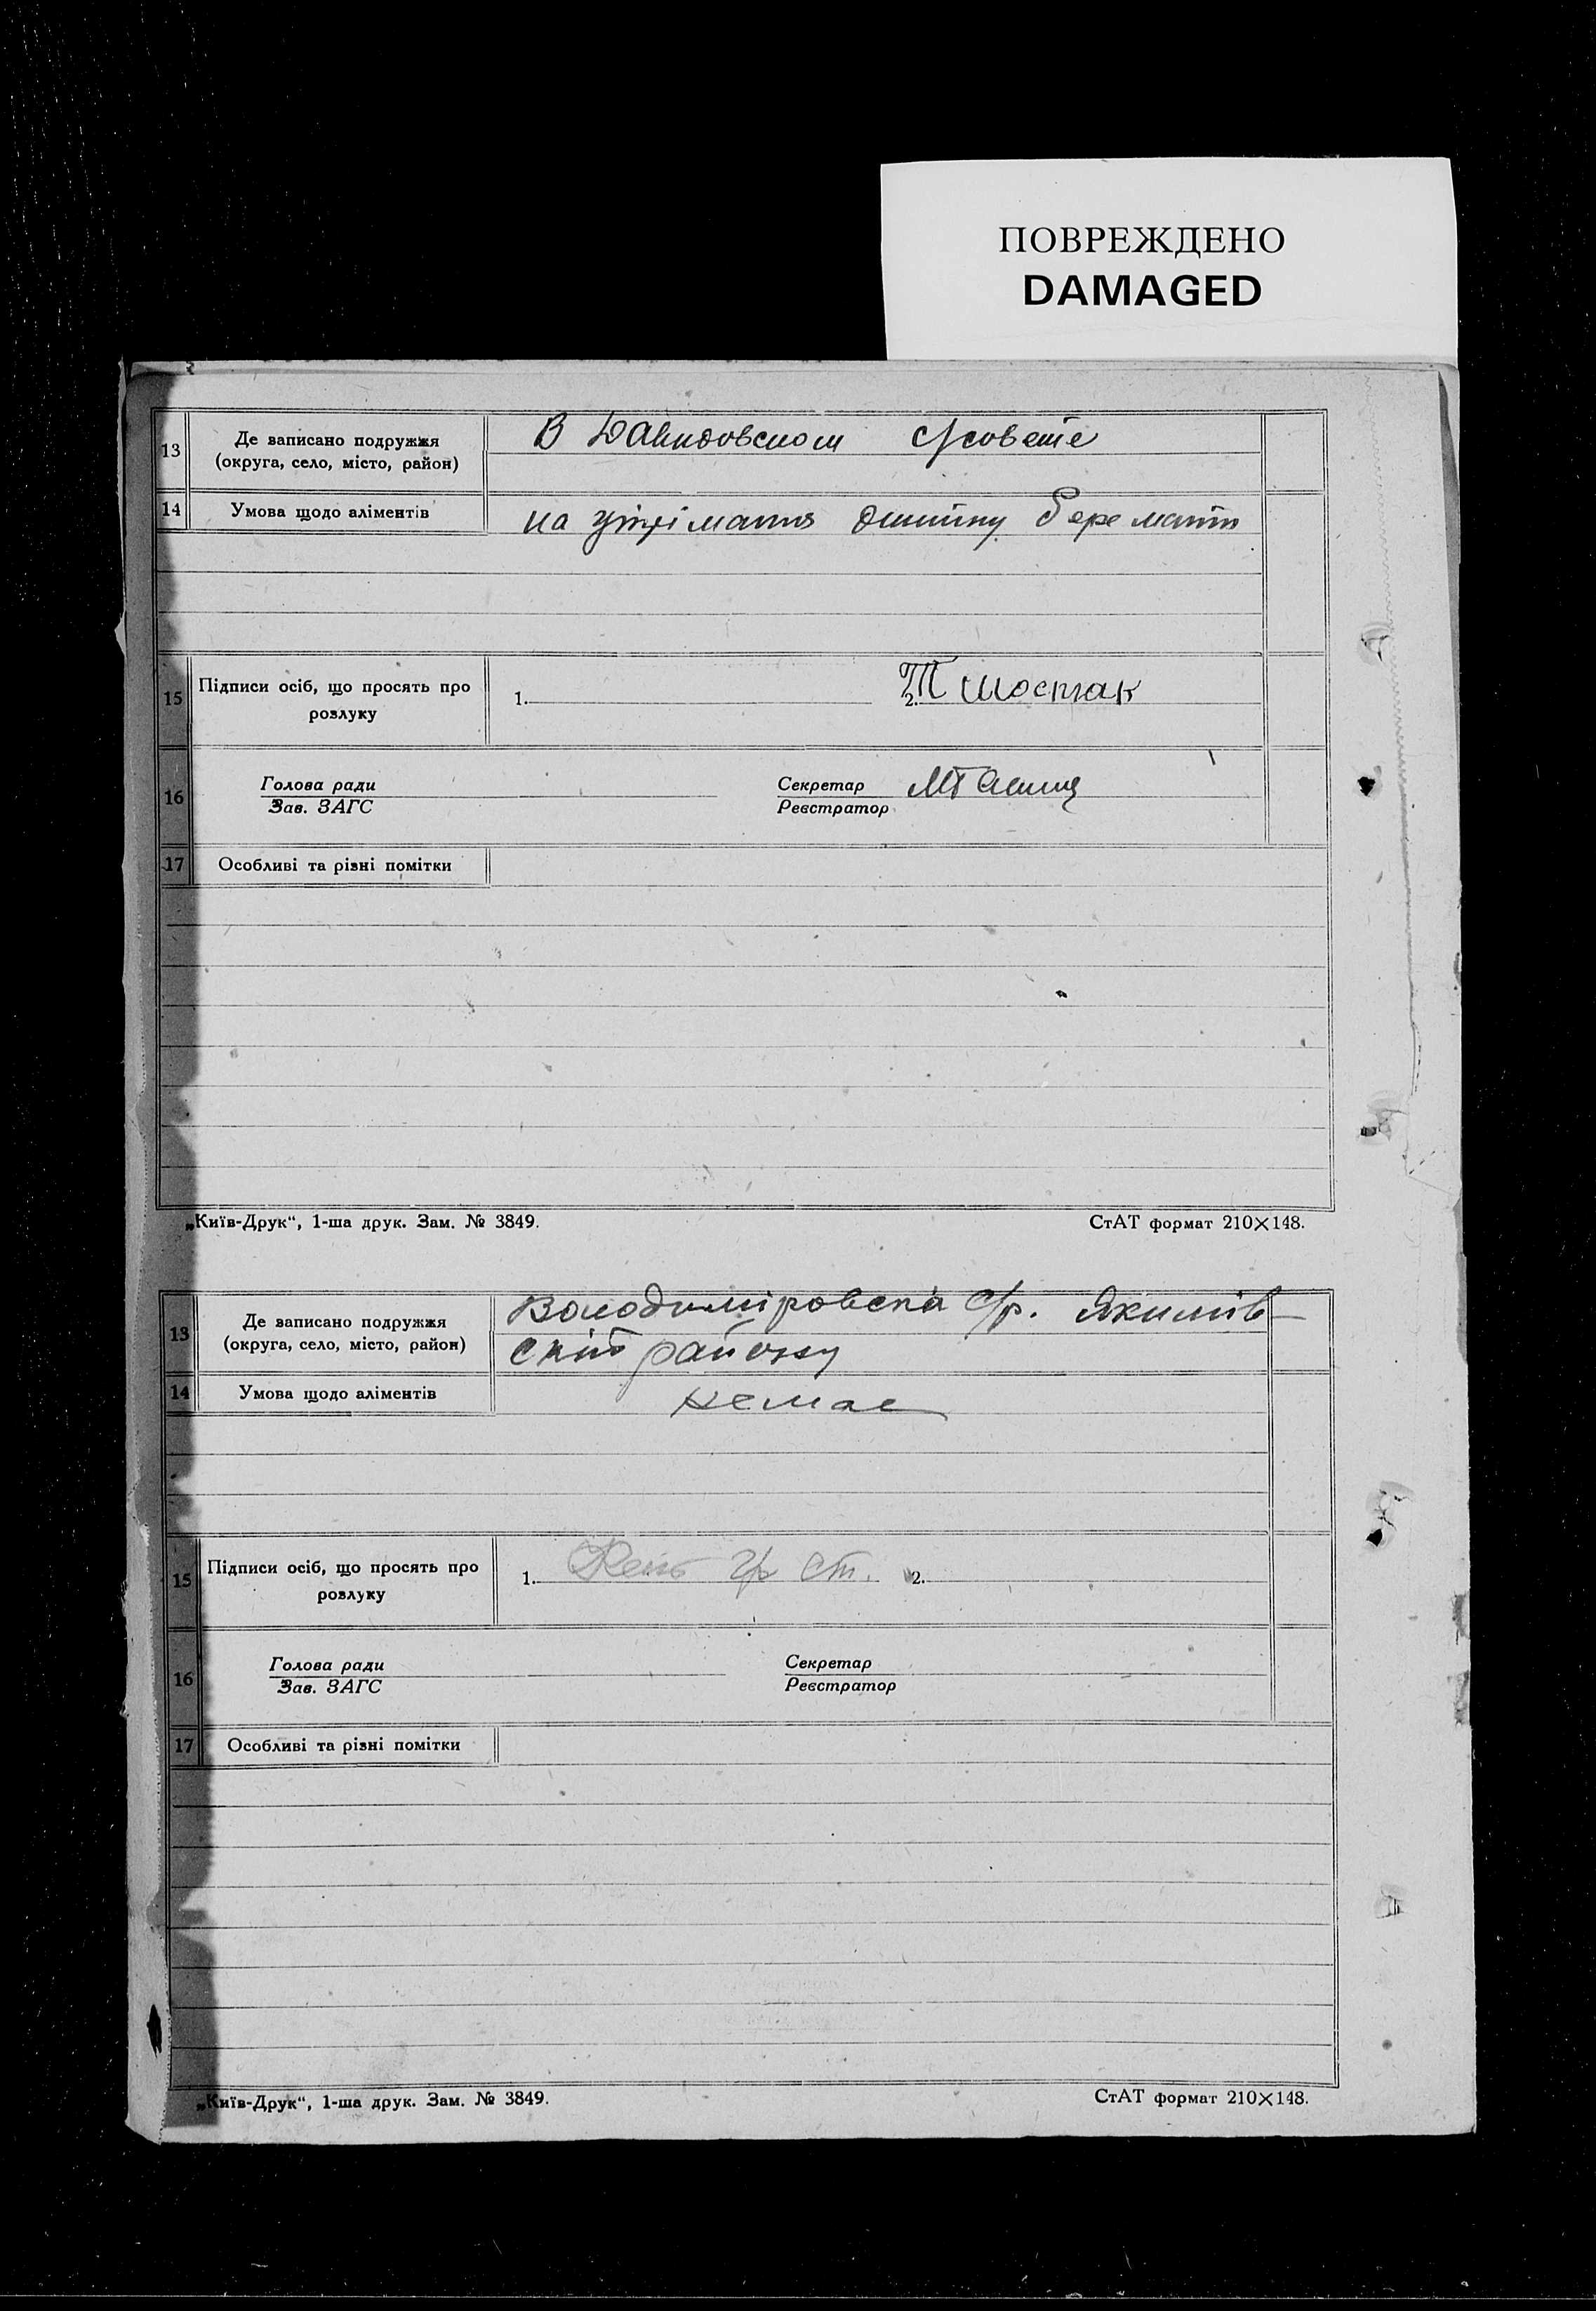 ПОВРЕЖДЕНО
DAMAGED
13
Де записано подружжя
(округа, село, місто, район)
В Давидовском с/совете
14
Умова щодо аліментів
на утрімання дитину бере мати
15
Підписи осіб, що просять про
розлуку
1.
2.
Т Шостак
16
Голова ради
Зав. ЗАГС
Секретар
Реєстратор
17
Особливі та різні помітки
„Київ-Друк“, 1-ша друк. Зам. № 3849.
СтАТ формат 210×148.
13
Де записано подружжя
(округа, село, місто, район)
Володиміровска с/р. Якимів-
ский району
14
Умова щодо аліментів
немає
15
Підписи осіб, що просять про
розлуку
1.
2.
16
Голова ради
Зав. ЗАГС
Секретар
Реєстратор
17
Особливі та різні помітки
„Київ-Друк“, 1-ша друк. Зам. № 3849.
СтАТ формат 210×148.